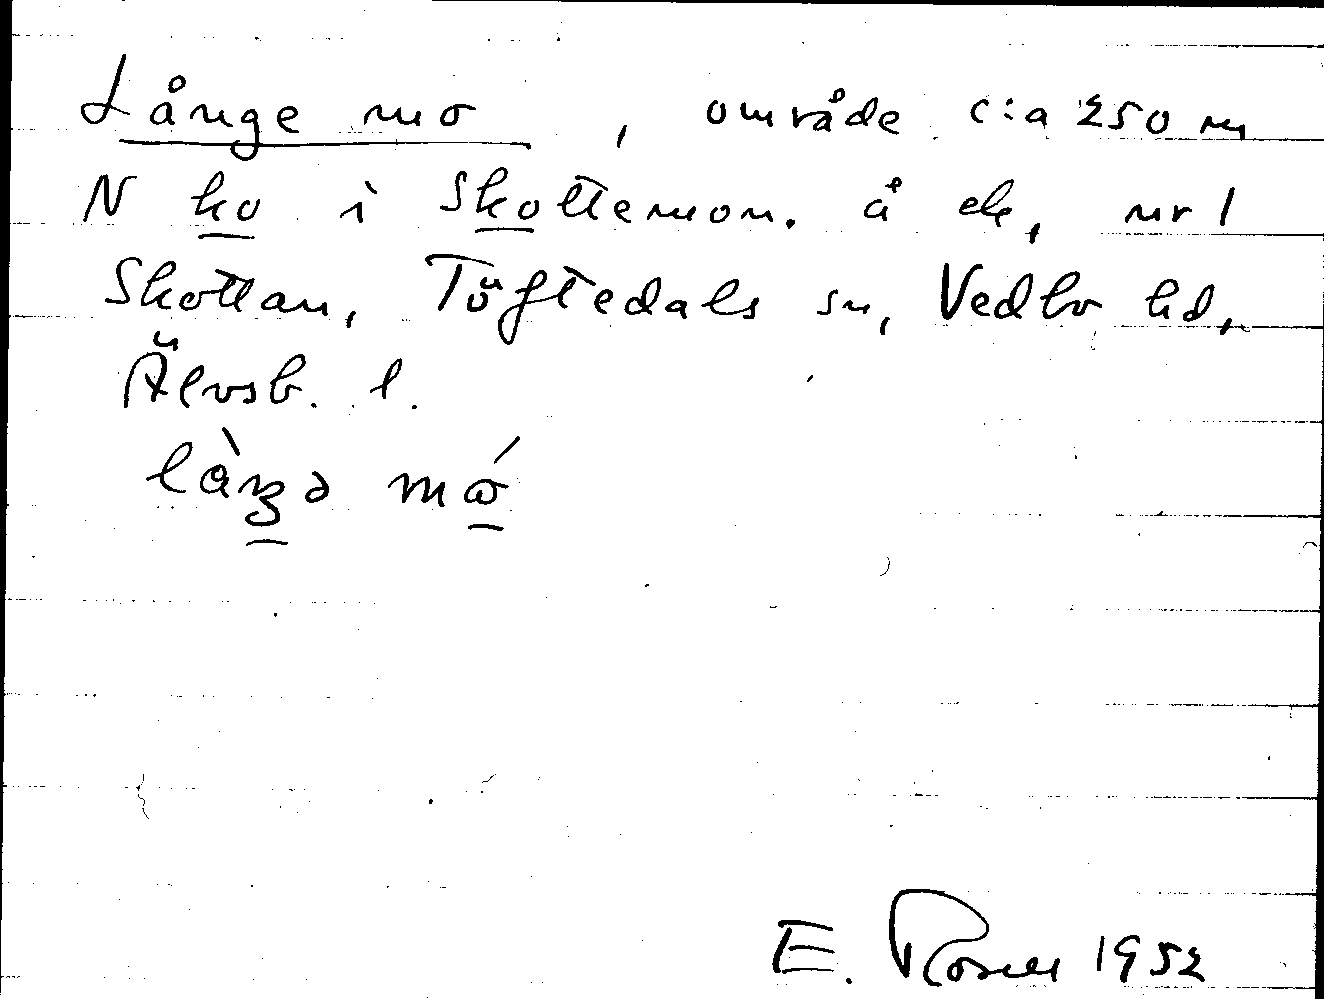 Långe mo, område c:a 250 m
N ko i Skottemon. å ek, nr 1
Skottan, Töftedals sn, Vedbo hd,
Älvsb. l.
E. 1952